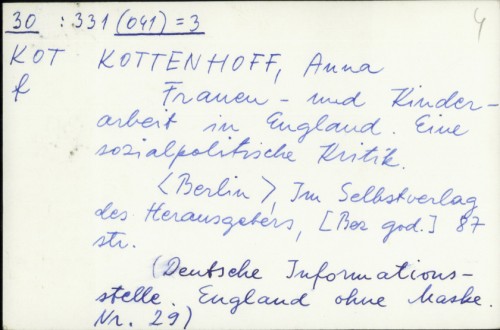 30 : 331 (041) = 3
4
KOT KOTTENHOFF, Anna
f Frauen - und Kinder-
arbeit in England. Eine
sozialpolitische Kritik.
<Berlin>, Im Selbstverlag
des Herausgebers, [Bez god.] 87
str.
(Deutsche Informations-
stelle. England ohne Maske.
Nr. 29)